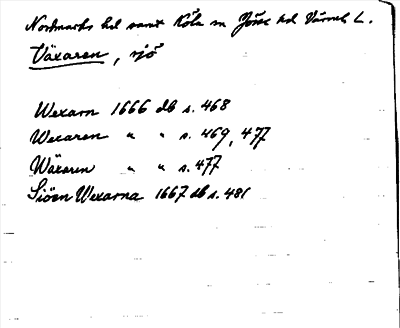 Nordmarks hd samt Köla sn Jösse hd Värml L.
Växaren, sjö
Wexarn 1666 db s. 468
Wexaren " " s. 469, 477
Wäxaren " " s. 477
Siöen Wexarna 1667 db s. 481